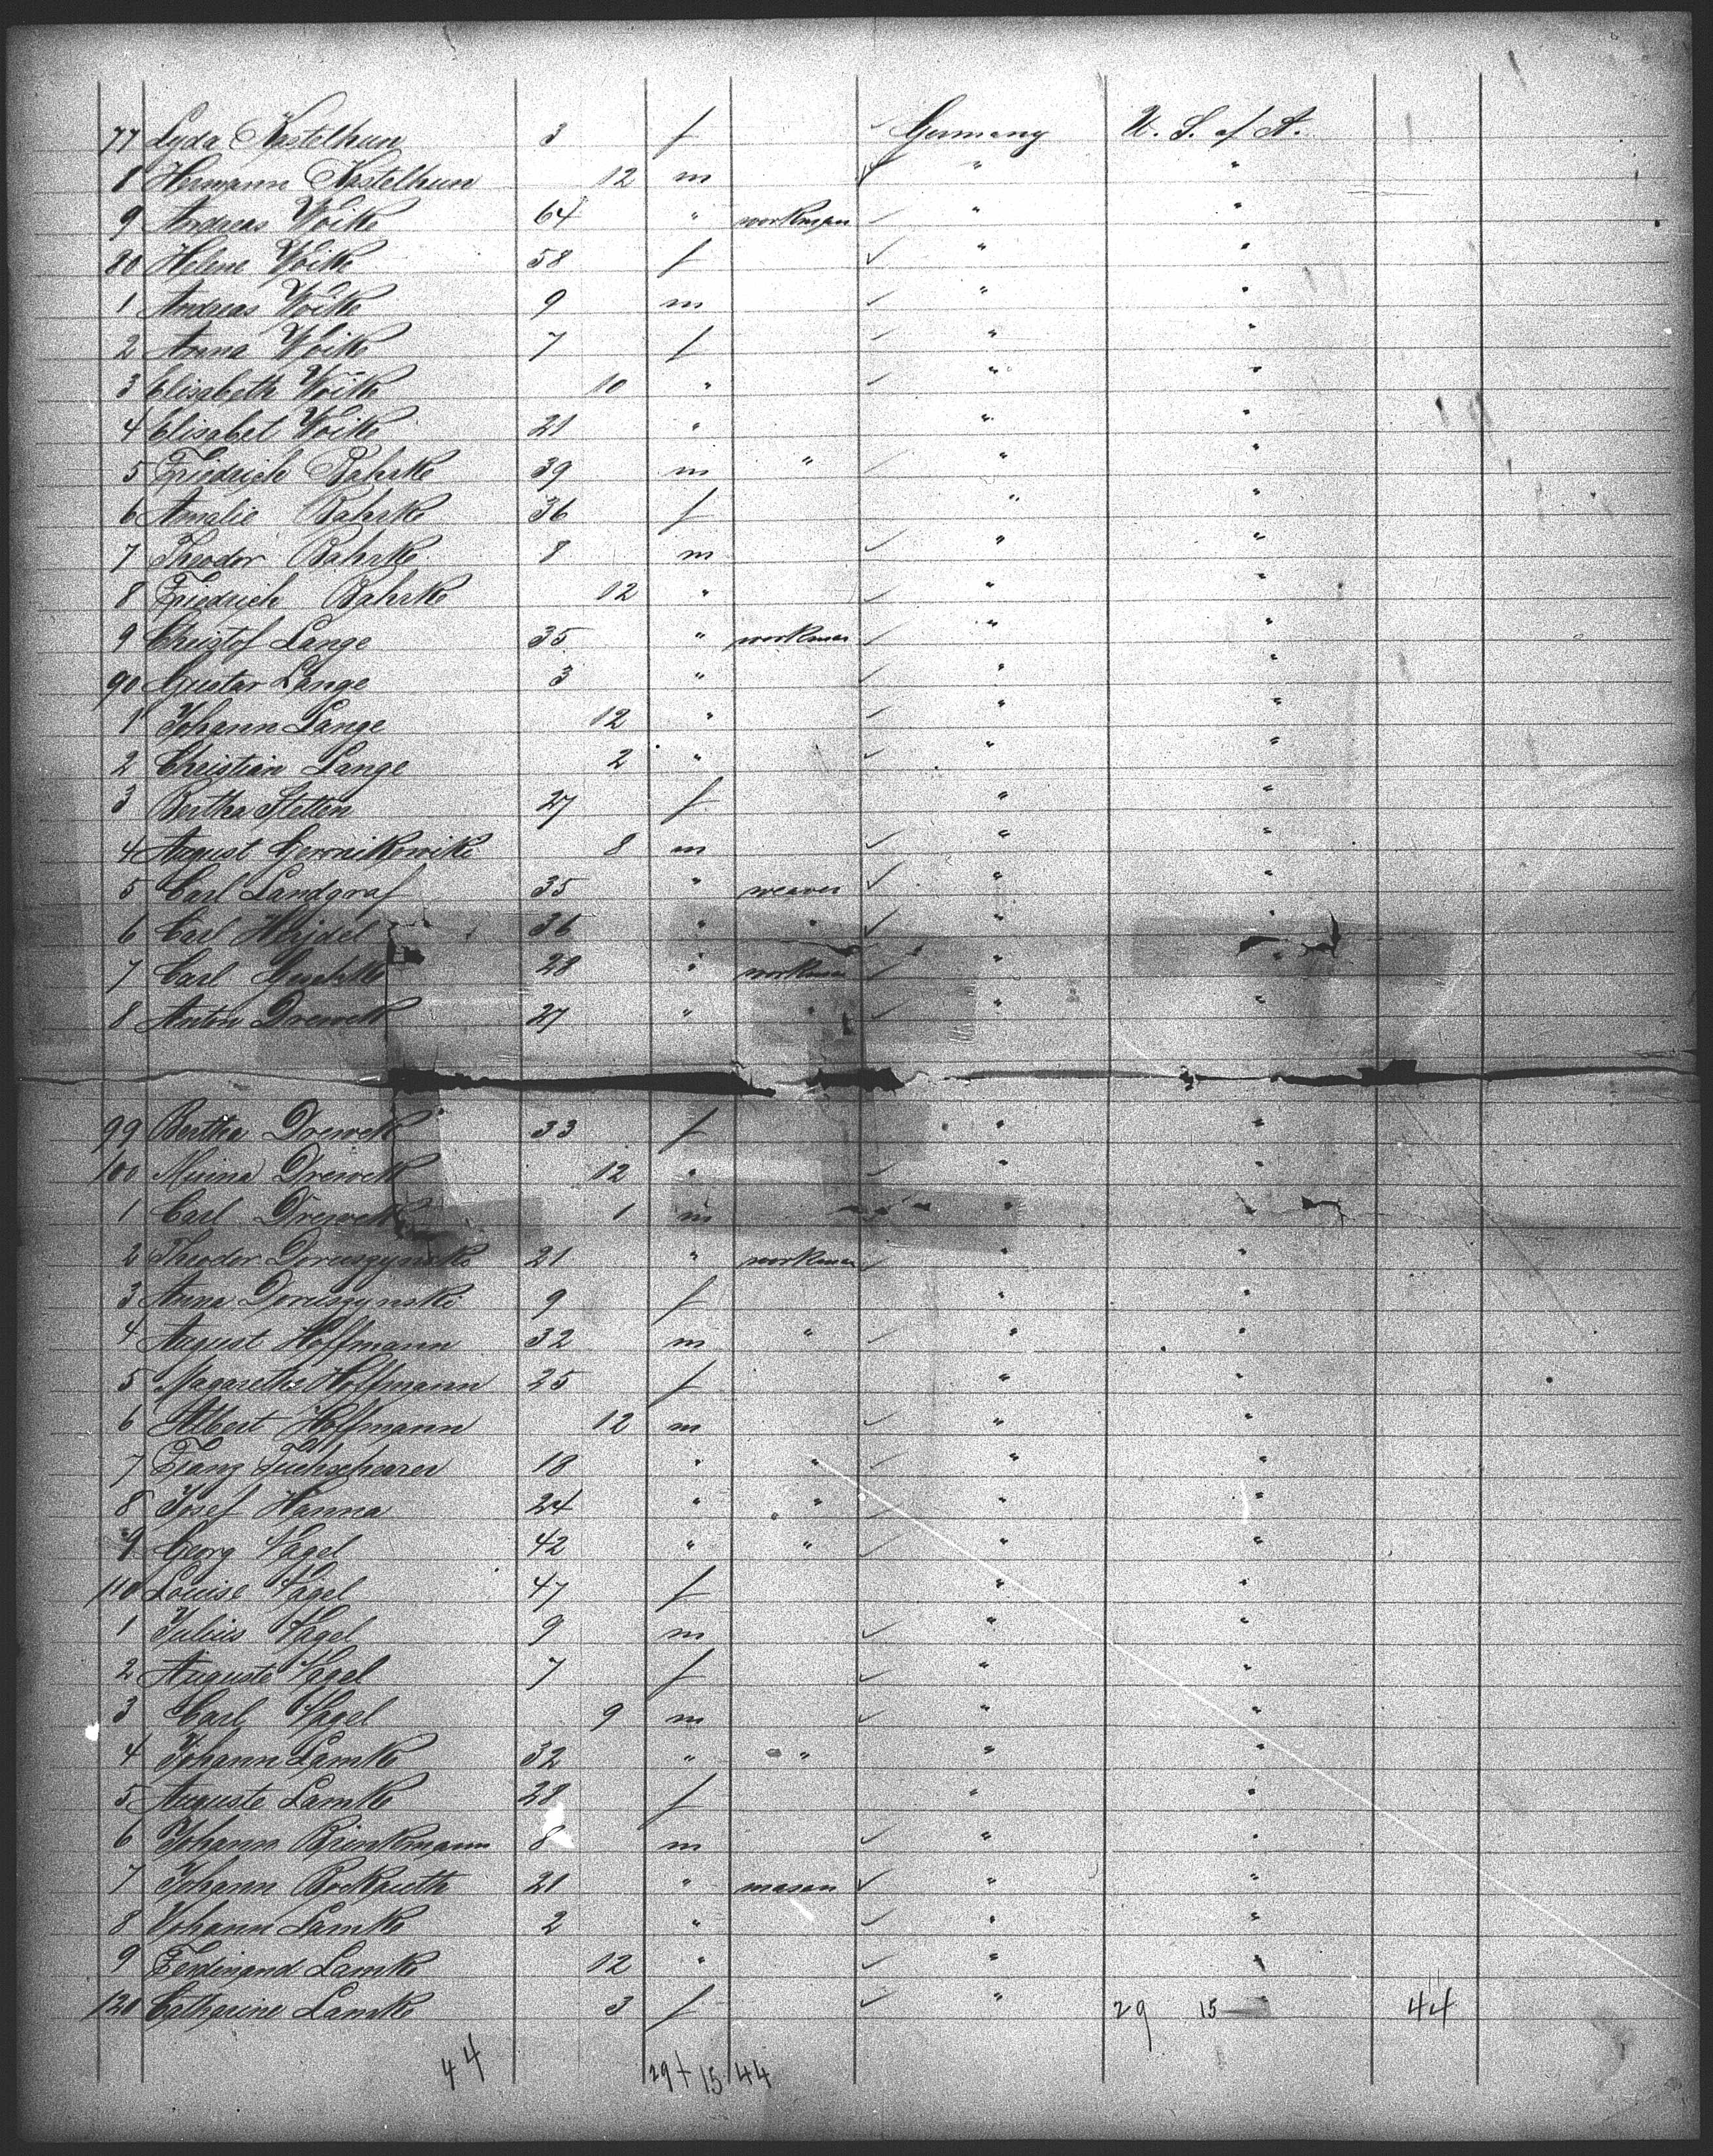 77 Lyda Kastelhun 3 f Germany U. S. of A.
8 Hermann Kastelhun 12 m " "
9 Andreas Woike 64 " workman " "
80 Helene Woike 58 f " "
1 Andreas Woike 9 m " "
2 Anna Woike 7 f " "
3 Elisabeth Woike 10 " " "
4 Elisabet Woike 21 " " "
5 Friedrich Bahrke 39 m " " "
6 Amalie Bahrke 36 f " "
7 Theodor Bahrke 8 m " "
8 Friedrich Bahrke 12 " " "
9 Christof Lange 35 " workman " "
90 Gustav Lange 3 " " "
1 Johann Lange 12 " " "
2 Christian Lange 2 " " "
3 Bertha Stetten 27 f " "
4 August 8 m " "
5 Carl Landgraf 35 " weaver " "
6 Carl Heidel 36 " " " "
7 Carl 28 " workman " "
8 Anton Drewek 27 " " "
99 Bertha Drewek 33 f " "
100 Minna Drewek 12 " " "
1 Carl Drewek 1 m " "
2 Theodor Doruszynski 21 " workman " "
3 Anna Doruszynski 9 f " "
4 August Hoffmann 32 m " " "
5 Magarethe Hoffmann 25 f " "
6 Albert Hoffmann 12 m " "
7 Franz Tuchscherer 18 " " " "
8 Josef Hanna 24 " " " "
9 Georg Vagel 42 " " " "
110 Louise Vagel 47 f " "
1 Julius Vagel 9 m " "
2 Auguste Vagel 7 f " "
3 Carl Vagel 9 m " "
4 Johann Lamke 32 " " " "
5 Auguste Lamke 28 f " "
6 Johann Brinkmann 8 m " "
7 Johann 21 " mason " "
8 Johann Lamke 2 " " "
9 Ferdinand Lamke 12 " " "
120 Catharine Lamke 3 f " " 29 15 44
44 29+15/44